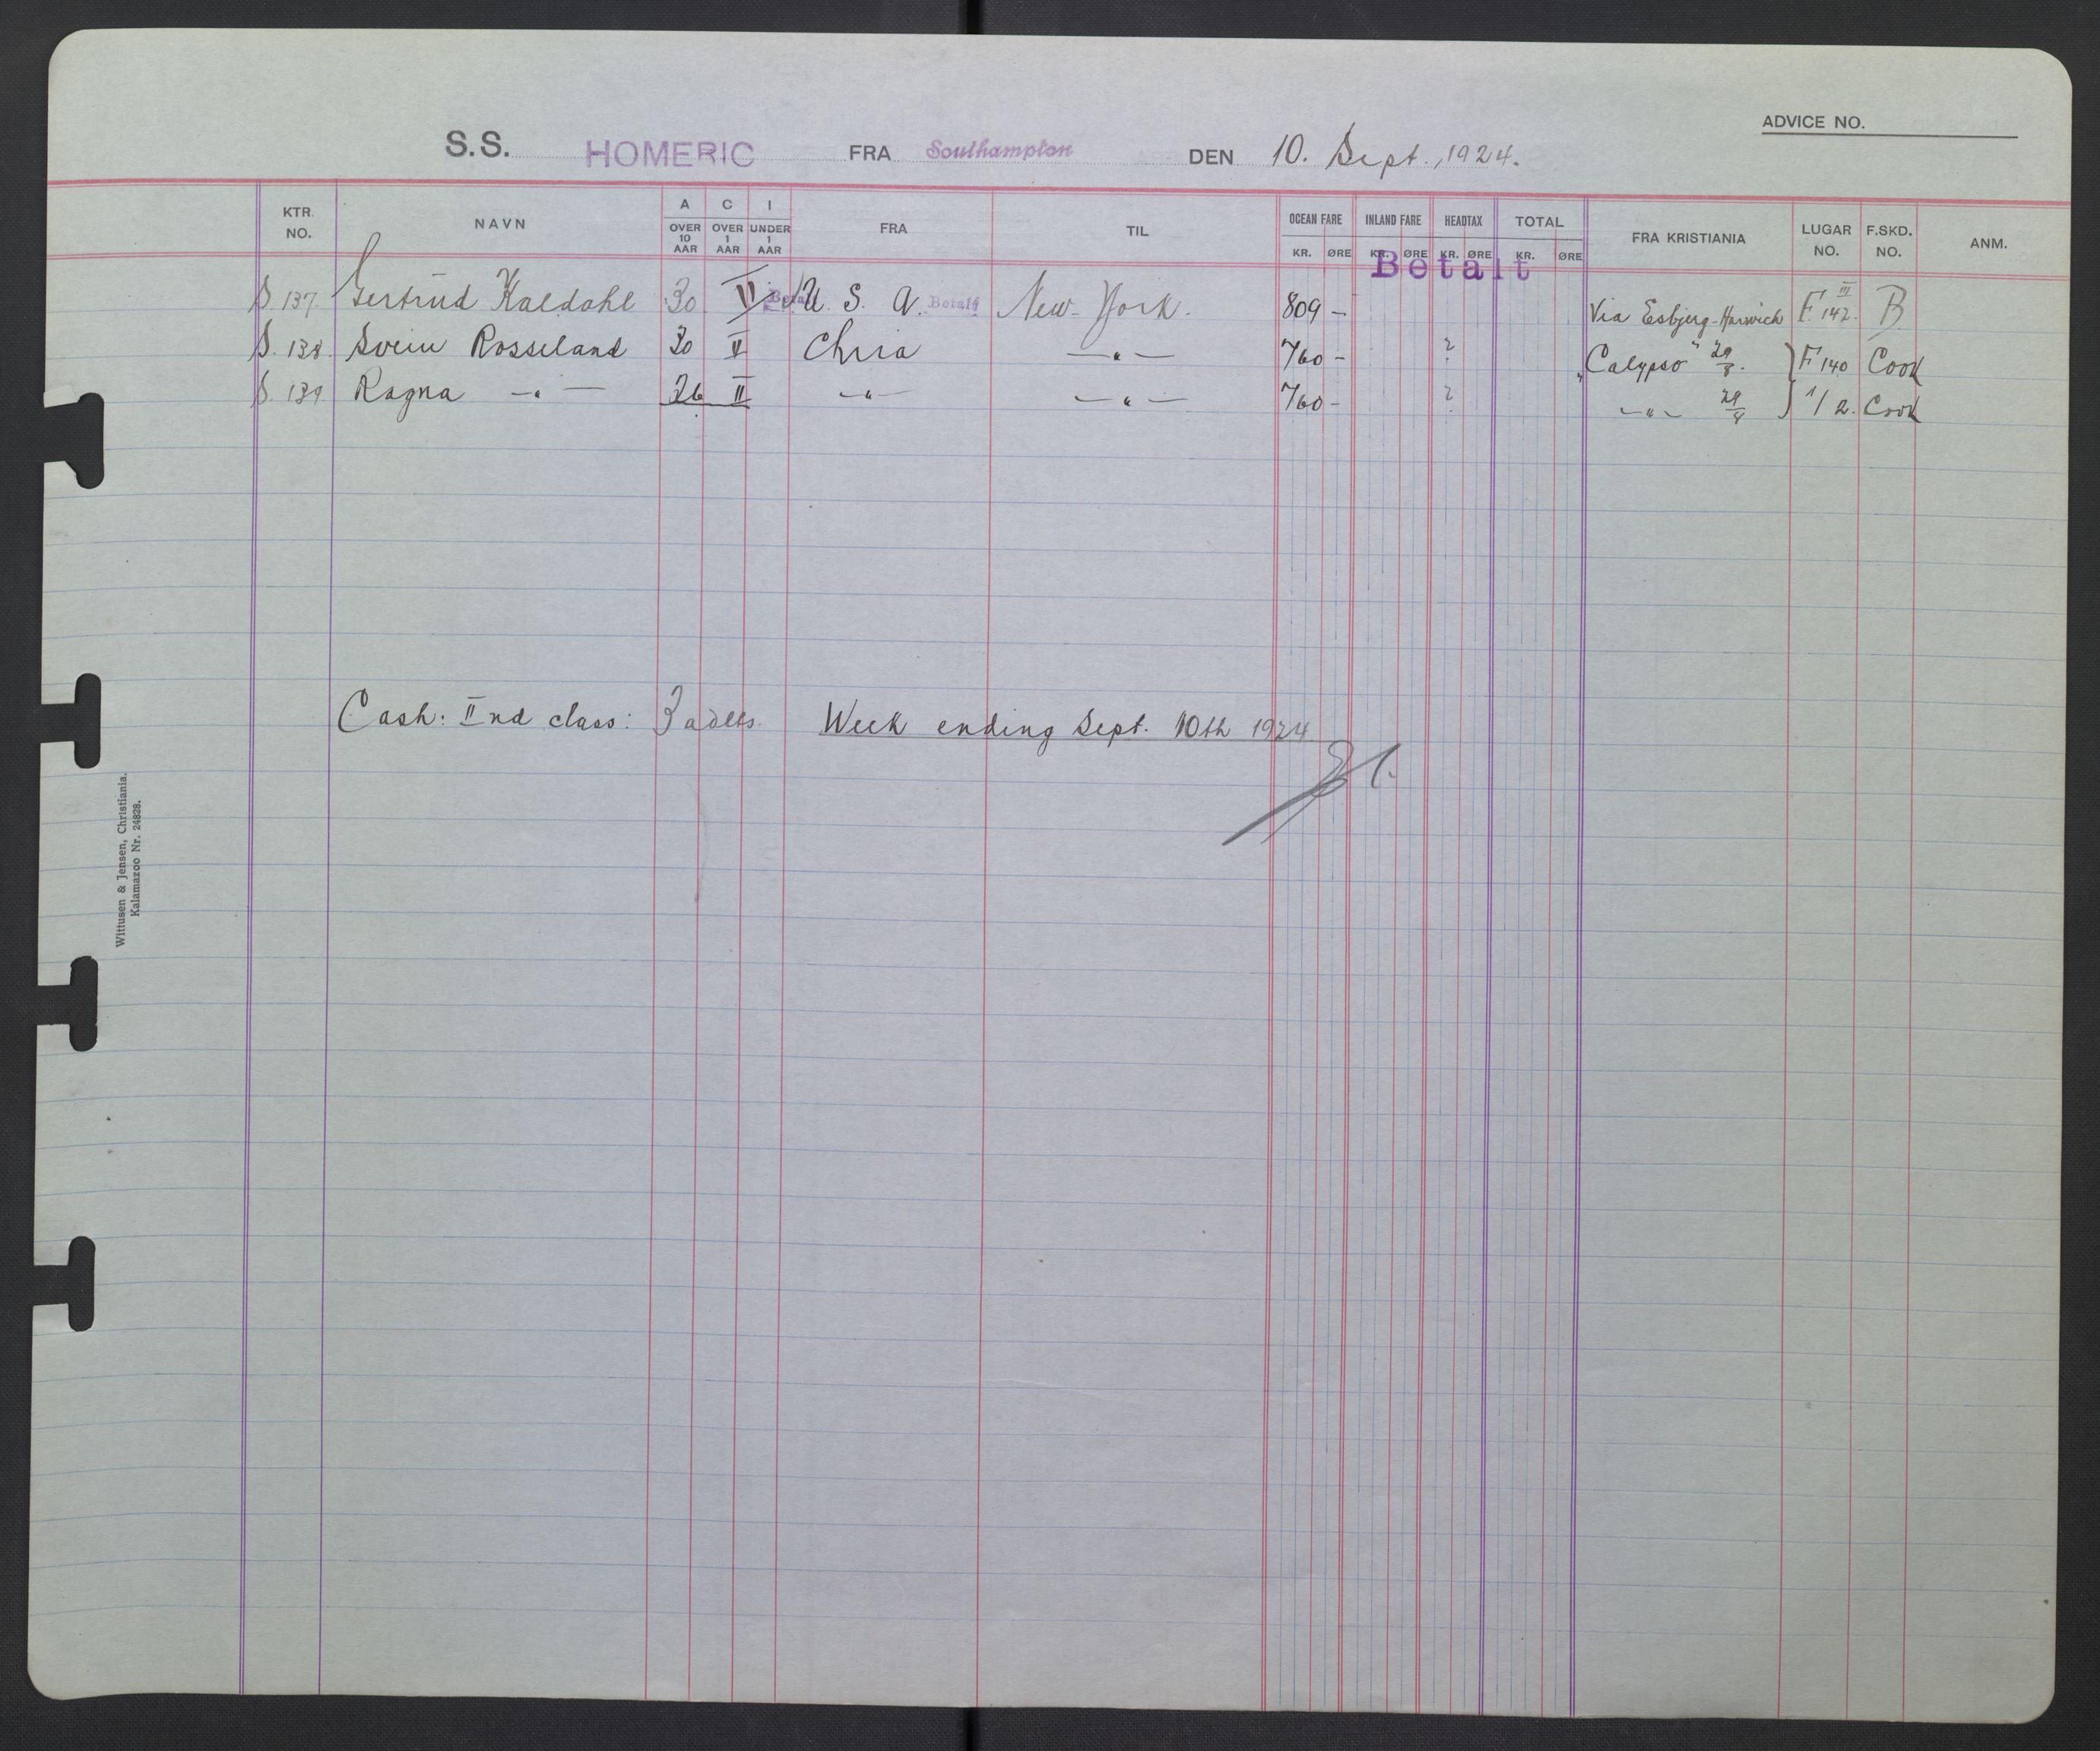 ADVICE NO.
S.S. HOMERIC FRA Southampton DEN 10. Sept. 1924.
KTR. NO. NAVN A OVER 10 AAR C OVER 1 AAR I UNDER 1 AAR FRA TIL OCEAN FARE KR. ØRE INLAND FARE KR. ØRE HEADTAX KR. ØRE TOTAL KR. ØRE FRA KRISTIANIA LUGAR NO. F.SKD. NO. ANM.
Betalt
S. 137. Gertrud Kaldahl 30 II Betalt U. S. A. Betalt New-York. 809 - Via Esbjerg-Harwich F. 142. III B
S. 138. Svein Rosseland 30 II Chria —"— 760 - ? "Calypso" F 140 Cook
S. 139. Ragna —"— 26 II —"— —"— 760 - ? —"— 1/2. Cook
Cash: IInd class: 3 adlts. Week ending Sept. 10th 1924
Wittusen & Jensen, Christiania.
Kalamazoo Nr. 24828.